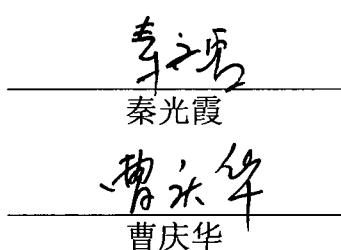 秦光霞
秦光霞
曹庆华
曹庆华